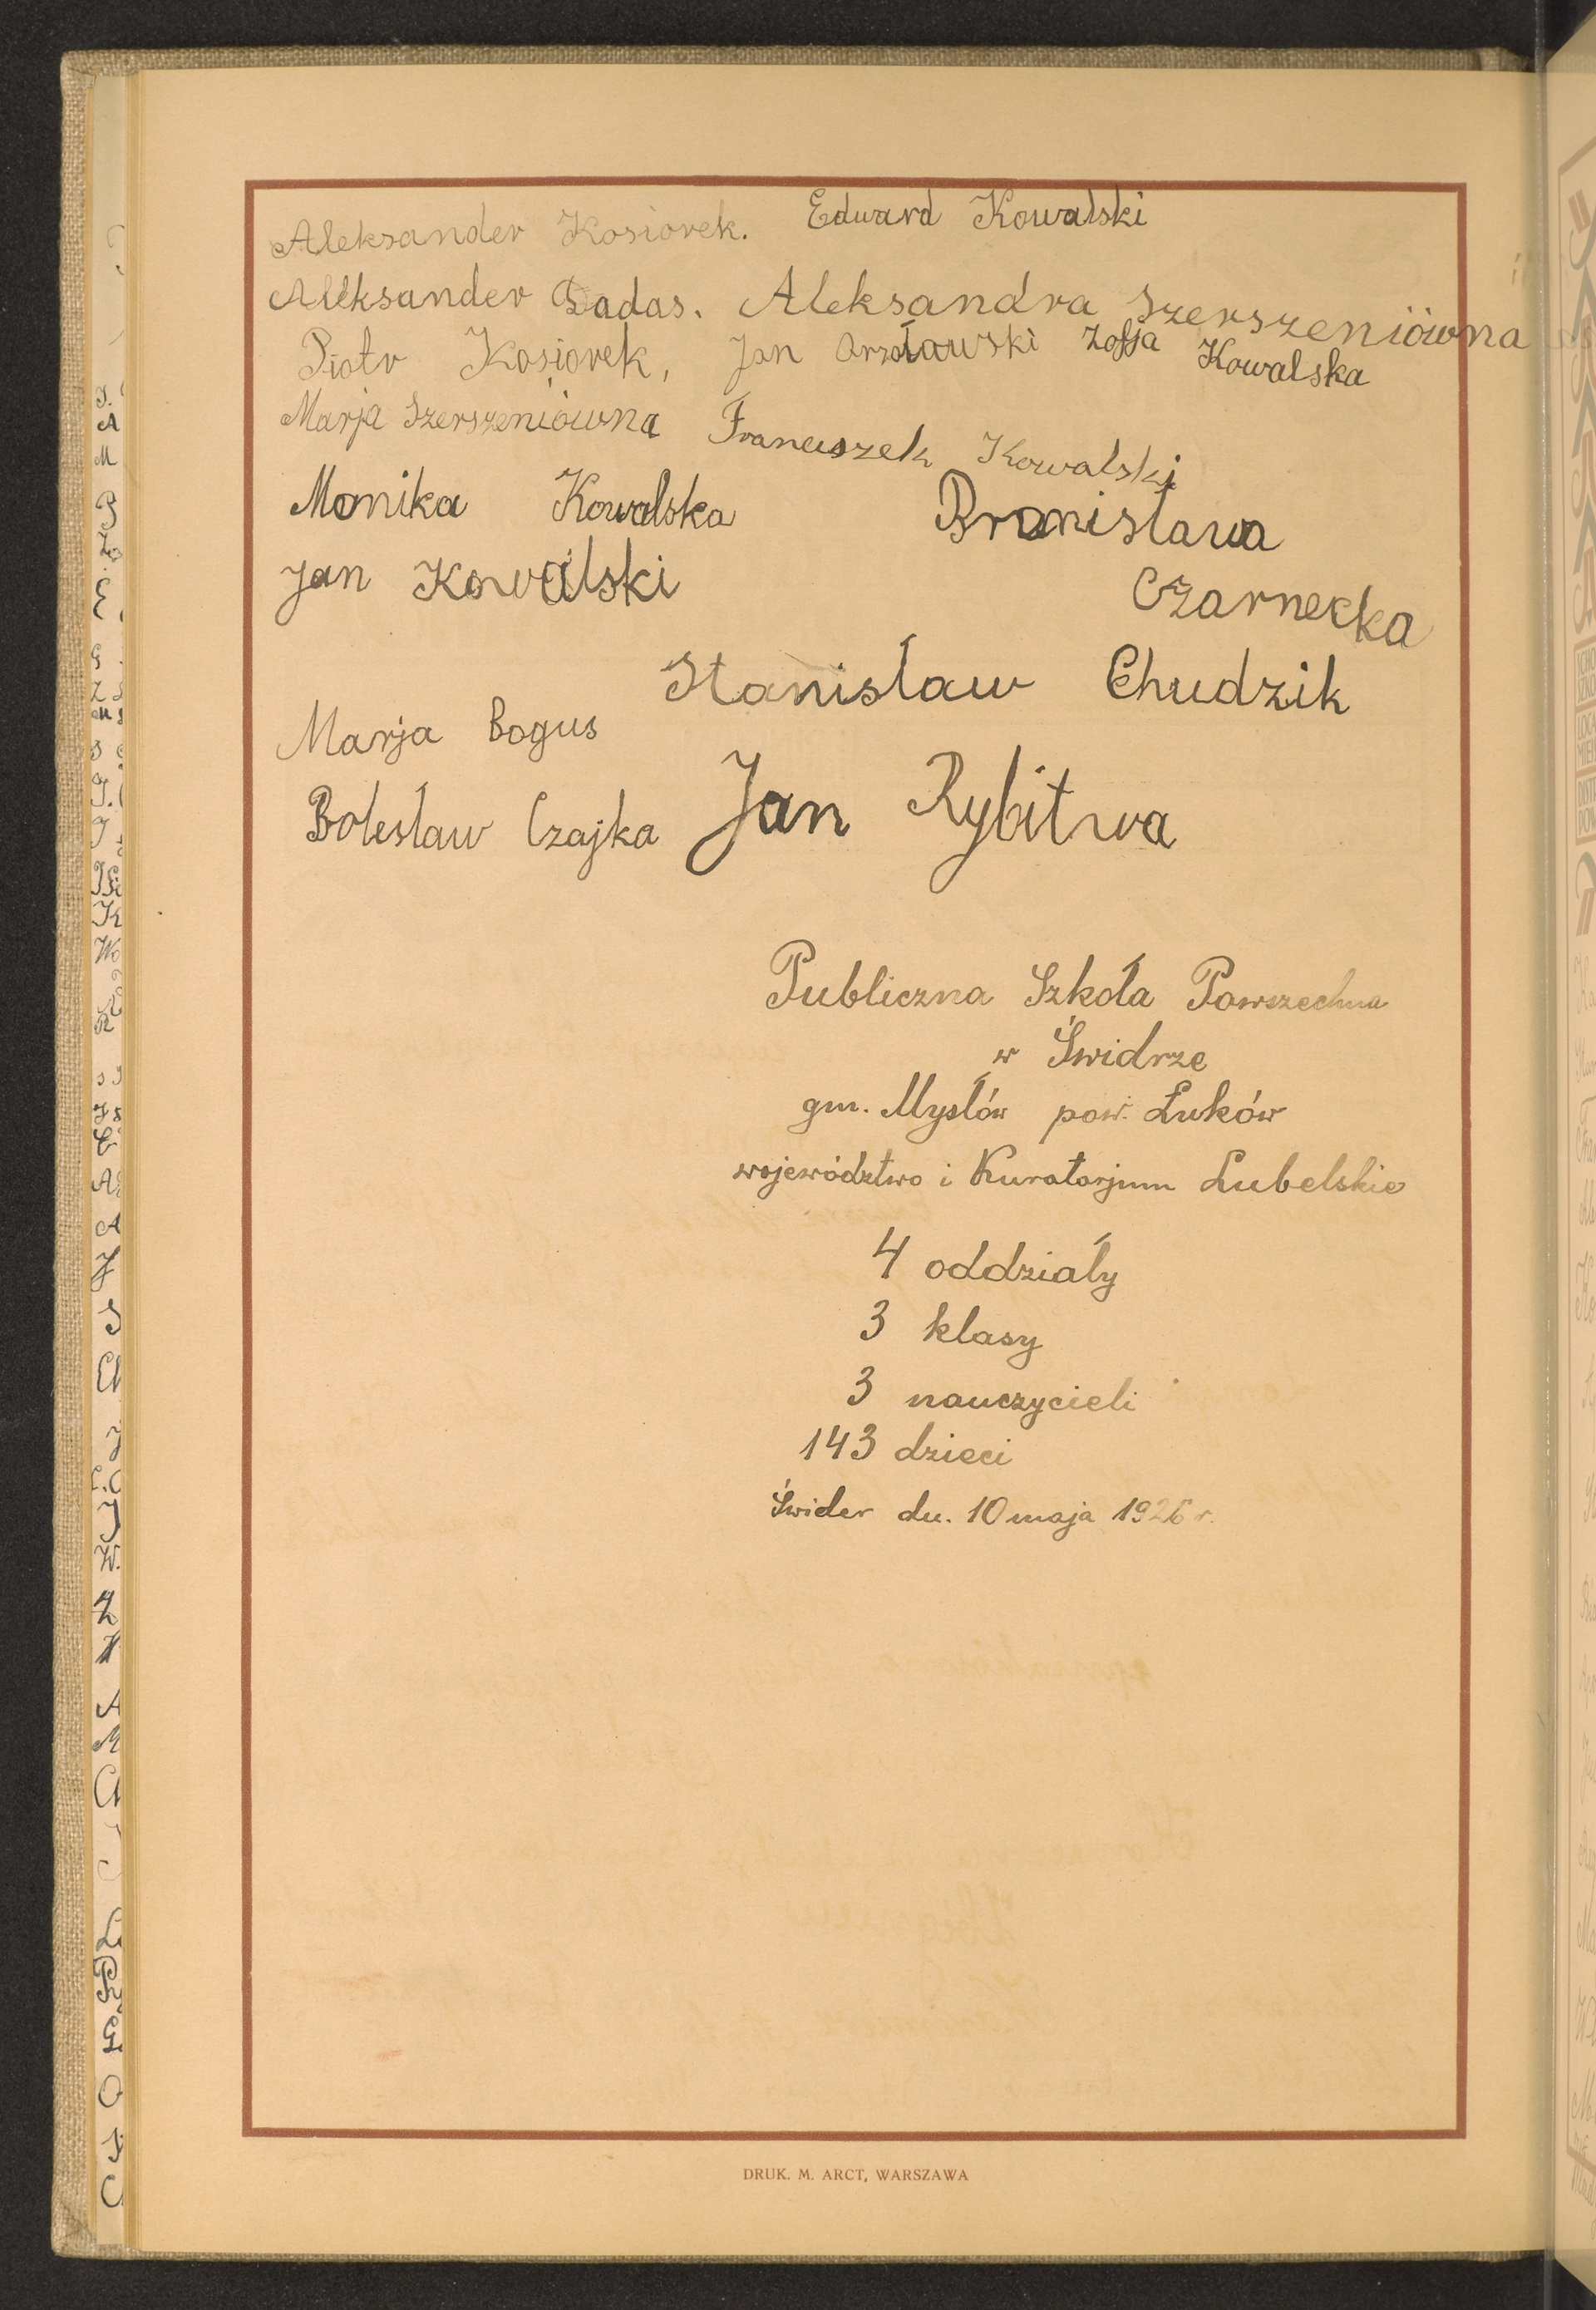 Aleksander Kosiorek. Edward Kowalski
Aleksander Badas. Aleksandra Szerszeniówna
Piotr Kosiorek, Jan Zofja Kowalska
Marja Szerszeniówna Franciszek Kowalski
Monika Kowalska Bronisława
Jan Kowalski Czarnecka
Stanisław Chudzik
Marja Bogus
Bolesław Czajka Jan Rybitwa
Publiczna Szkoła Powszechna
w Świdrze
gm. Mysłów pow. Łuków
województwo i Kuratorjum Lubelskie
4 oddziały
3 klasy
3 nauczycieli
143 dzieci
Świder dn. 10 maja 1926 r.
DRUK. M. ARCT, WARSZAWA